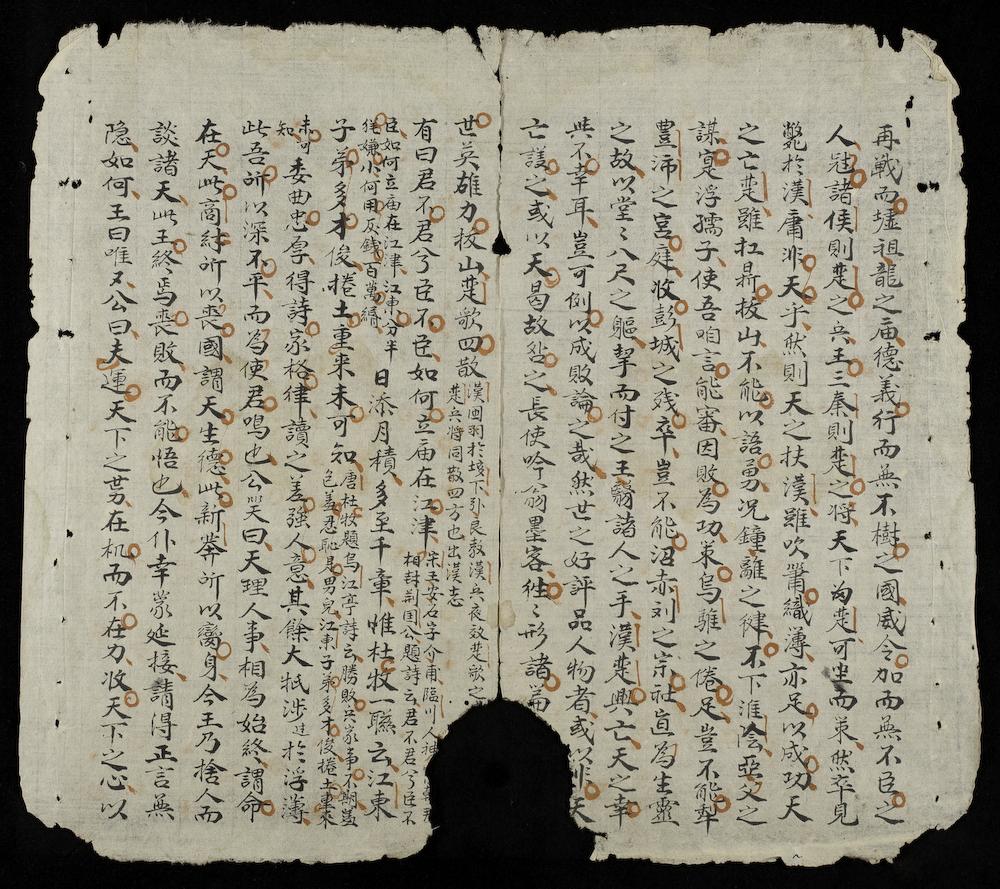 再戰而墟祖龍之庙德義行而無不樹之國威令加而無不臣之
人冠諸侯則楚之兵王三秦則楚之將天下為楚可坐而策然卒見
斃於漢庸非天乎然則天之扶漢雖吹簫織薄亦足以成功天
之亡楚雖扛鼎拔山不能以語勇况鐘離之健不下淮陰亞父之
謀寔浮孺子使吾咱言能審因敗為功策烏騅之倦足豈不能犁
豐沛之宮庭收彭城之残卒豈不能沼赤刘之宗社直為生靈
之故以堂〻八尺之軀挈而付之王翳諸人之手漢楚興亡天之幸
與不幸耳豈可例以成敗論之哉然世之好評品人物者或以非天
亡護之或以天曷故咎之長使吟翁墨客徃〻形諸篇
世英雄力拔山楚歌四散
漢囲羽於垓下引良教漢兵夜效楚歌之
楚兵將同散四方也出漢志
有曰君不君兮臣不臣如何立庙在江津
宋王安石字介甫臨川人神
相封荆国公題詩云君不君兮臣不
臣如何立庙在江津江東分半
猶嫌小何用反銭百萬緡
日添月積多至千章惟杜牧一聯云江東
子弟多才俊捲土重来未可知
唐杜牧題烏江亭詩云勝敗兵家事不期豈
包羞忍恥是男兒江東子弟多才俊捲土重來
未可
知
委曲忠厚得詩家格律讀之差強人意其餘大抵涉於浮薄
此吾所以深不平而為使君鳴也公笑曰天理人事相為始終謂命
在天此商紂所以喪國謂天生德此新莽所以變身今王乃捨人而
談諸天此王終焉喪敗而不能悟也今仆幸蒙延接請得正言無
隐如何王曰唯又公曰夫運天下之势在机而不在力收天下之心以